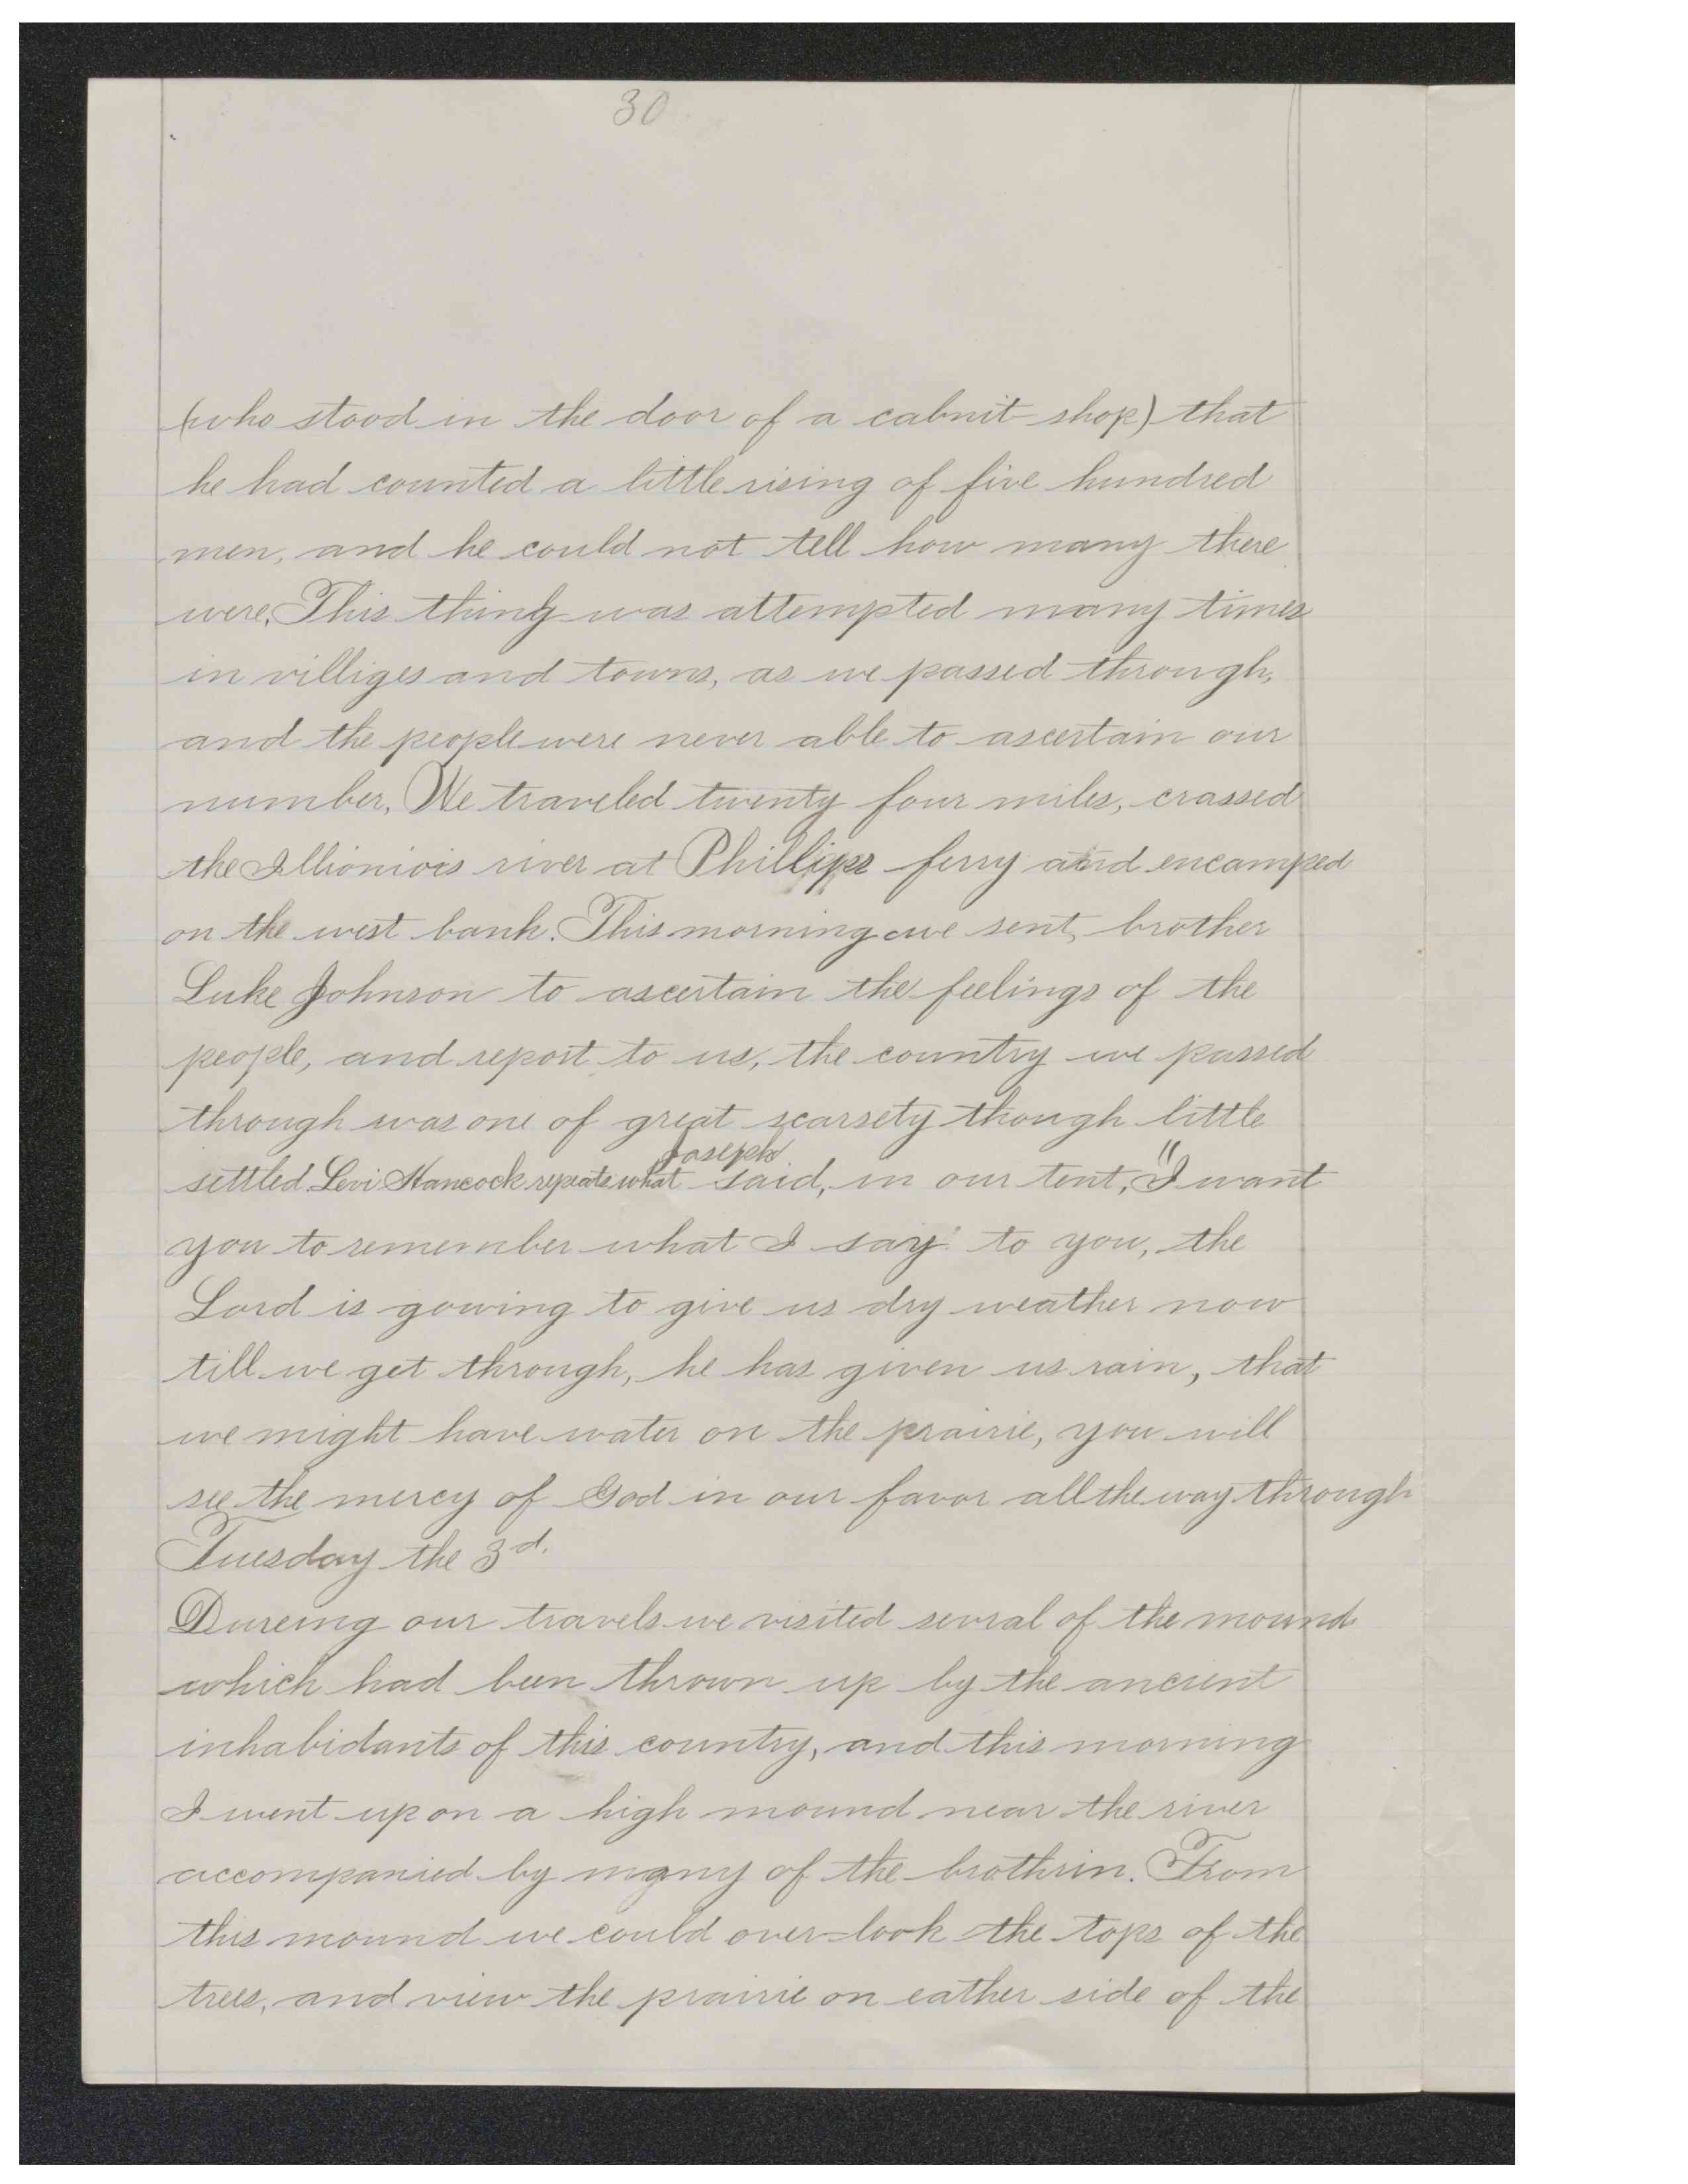 30
(who stood in the door of a cabnit shop) that
he had counted a little rising of five hundred
men, and he could not tell how many there
were. This thing was attempted many times
in villiges and towns, as we passed through,
and the people were never able to ascertain our
number, We traveled twenty four miles, crassed
the Illioniois river at Phillips ferry and encamped
on the west bank. This morning we sent, brother
Luke Johnson to ascertain the feelings of the
people, and report to us, the country we passed
through was one of great scarsety though little
Joseph
settled. Levi Hancock repeats what said, in our tent, "I want
you to remember what I say to you, the
Lord is gowing to give us dry weather now
till we get through, he has given us rain, that
we might have water on the prairie, you will
see the mercy of God in our favor all the way through
Tuesday the 3d.
Dureing our travels we visited sevral of the mounds
which had been thrown up by the ancient
inhabidants of this country, and this morning
I went up on a high mound near the river
accompanied by many of the brothrin. From
this mound we could over-look the tops of the
trees, and view the prairie on eather side of the